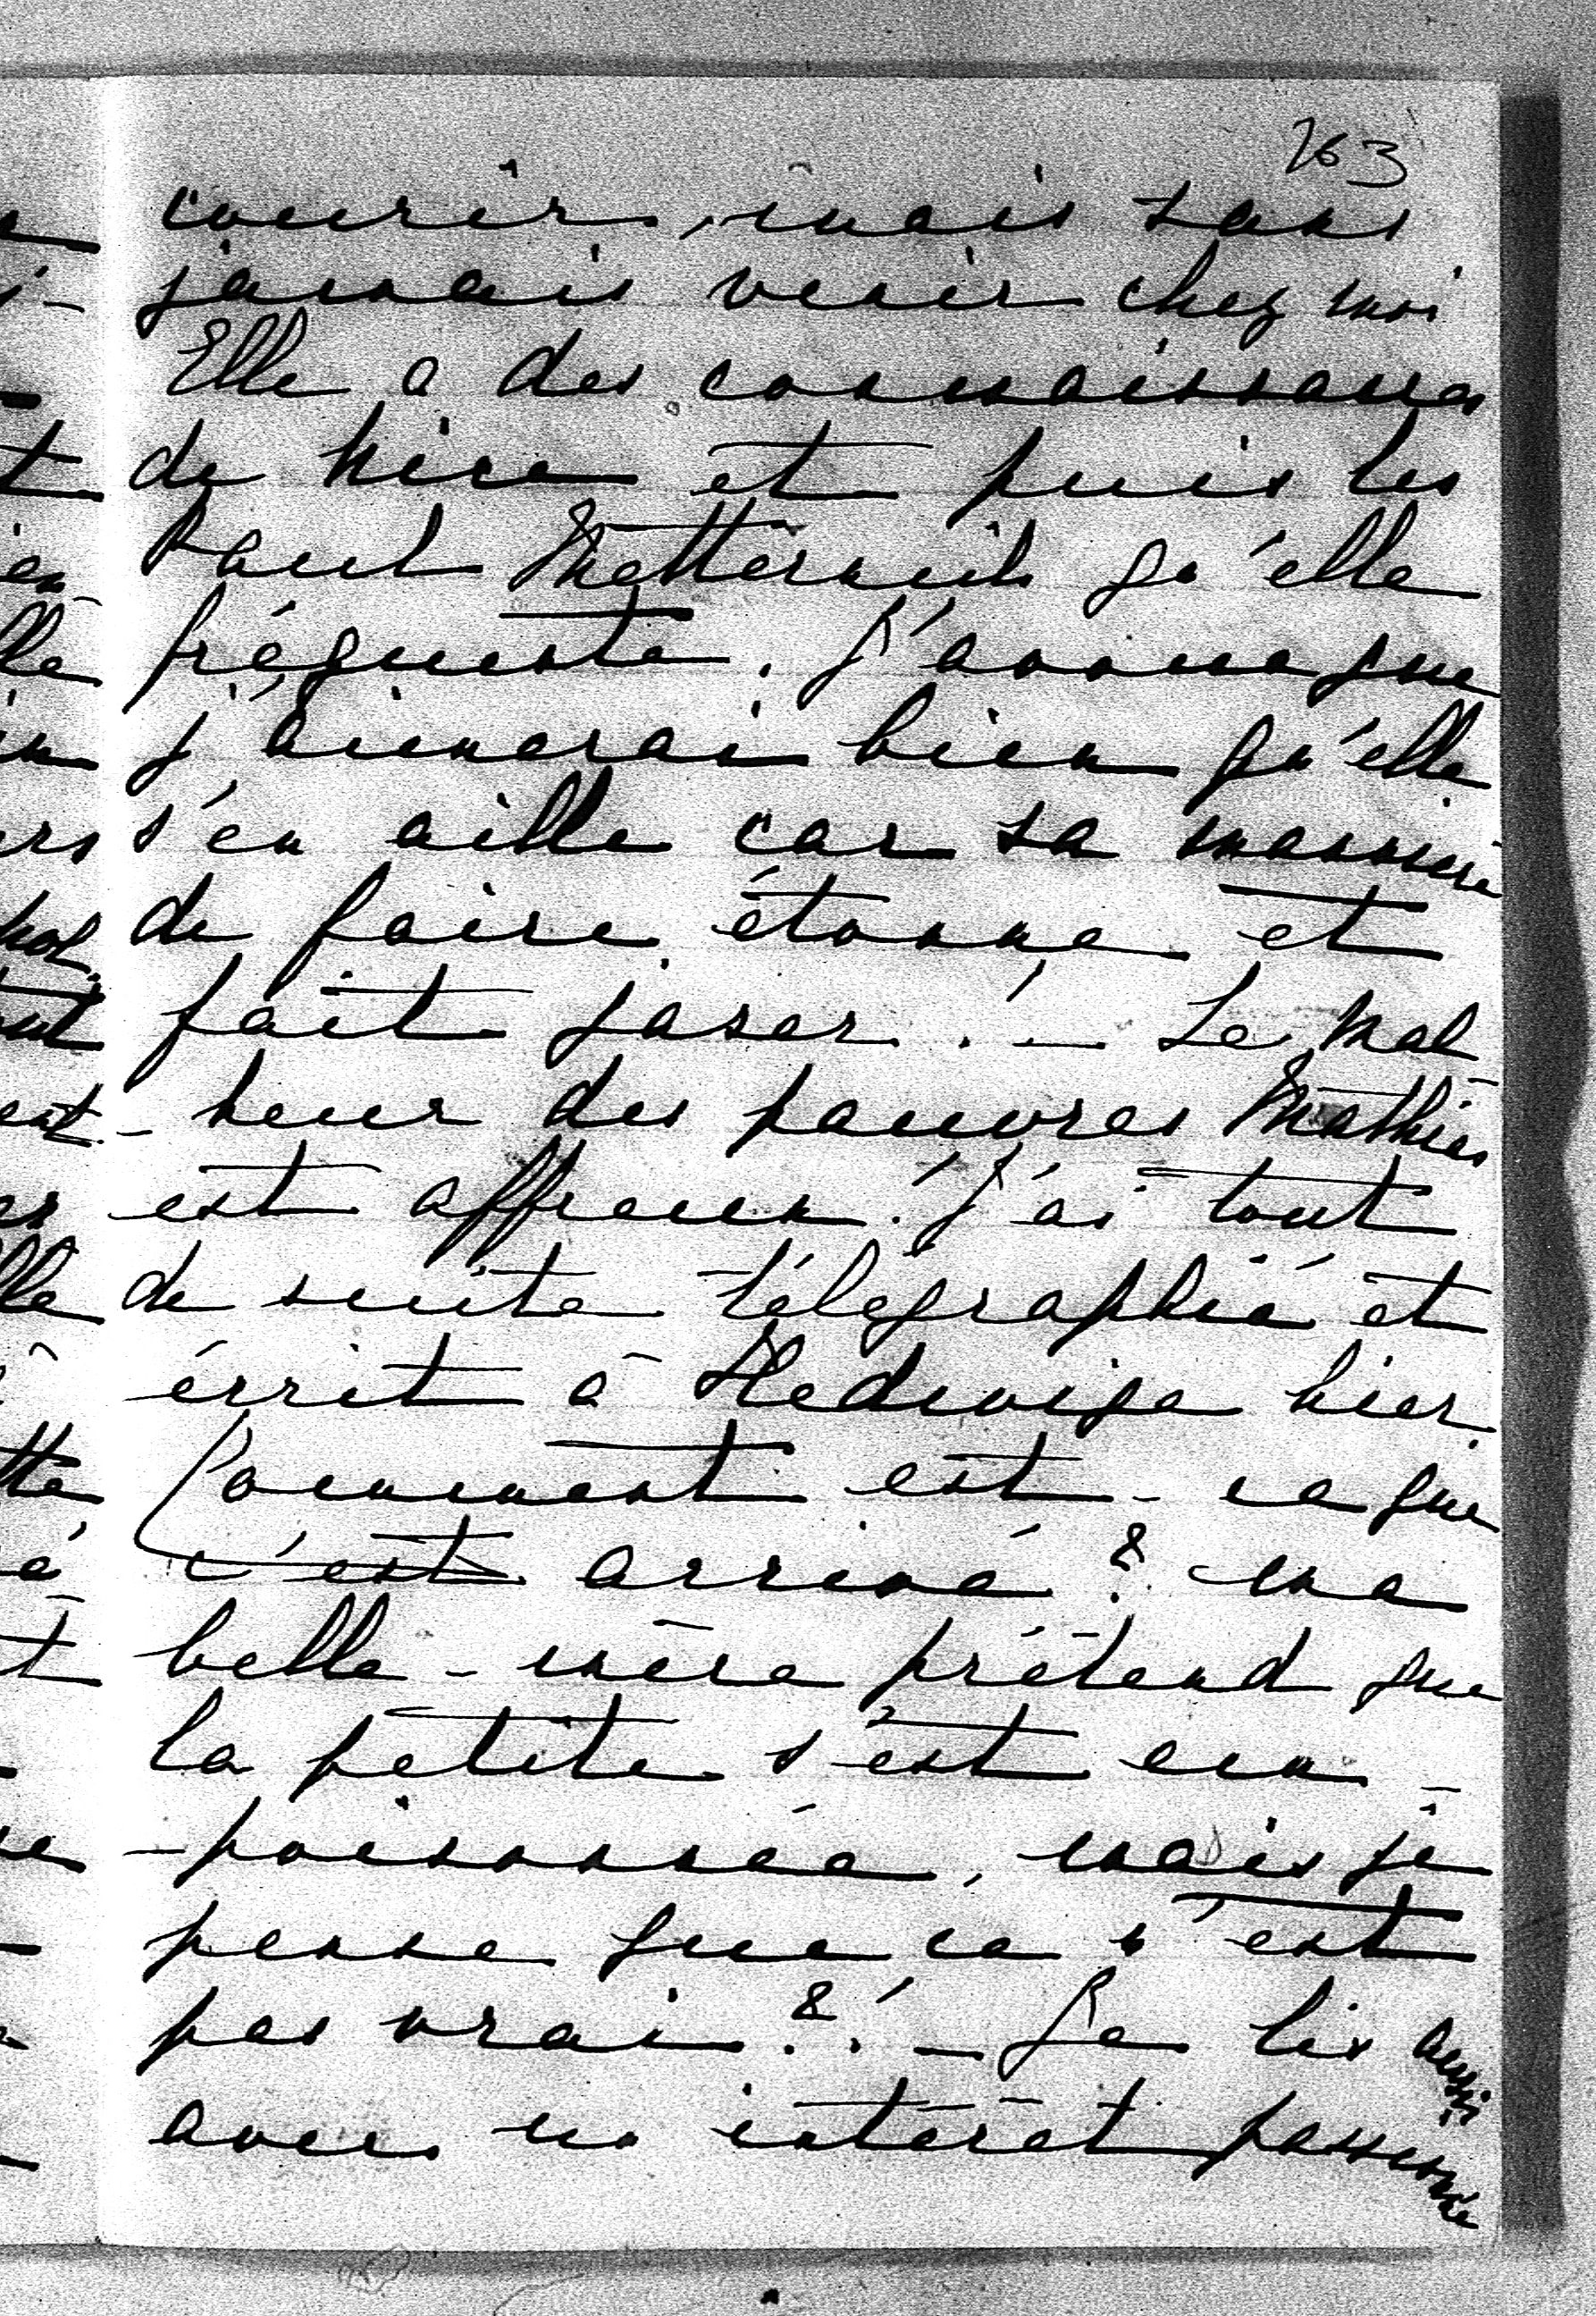 263
courir, mais sans
jamais venir chez moi
Elle a des connaissances
de Nice et puis les
Paul Metternich qu'elle
fréquente. J'avoue que
j'aimerai bien qu'elle
s'en aille car sa manière
de faire étonne et
fait jaser! – Le mal-
-heur des pauvres Mathies
est affreux! J'ai tout
de suite télégraphié et
écrit à Hedwige hier.
Comment est-ce que
c'est arrivé? ma
belle-mère prétend que
la petite s'est em-
-poisonnée, mais je
pense que ce n'est
pas vrai?! – Je lis aussi
avec un intérêt passionné